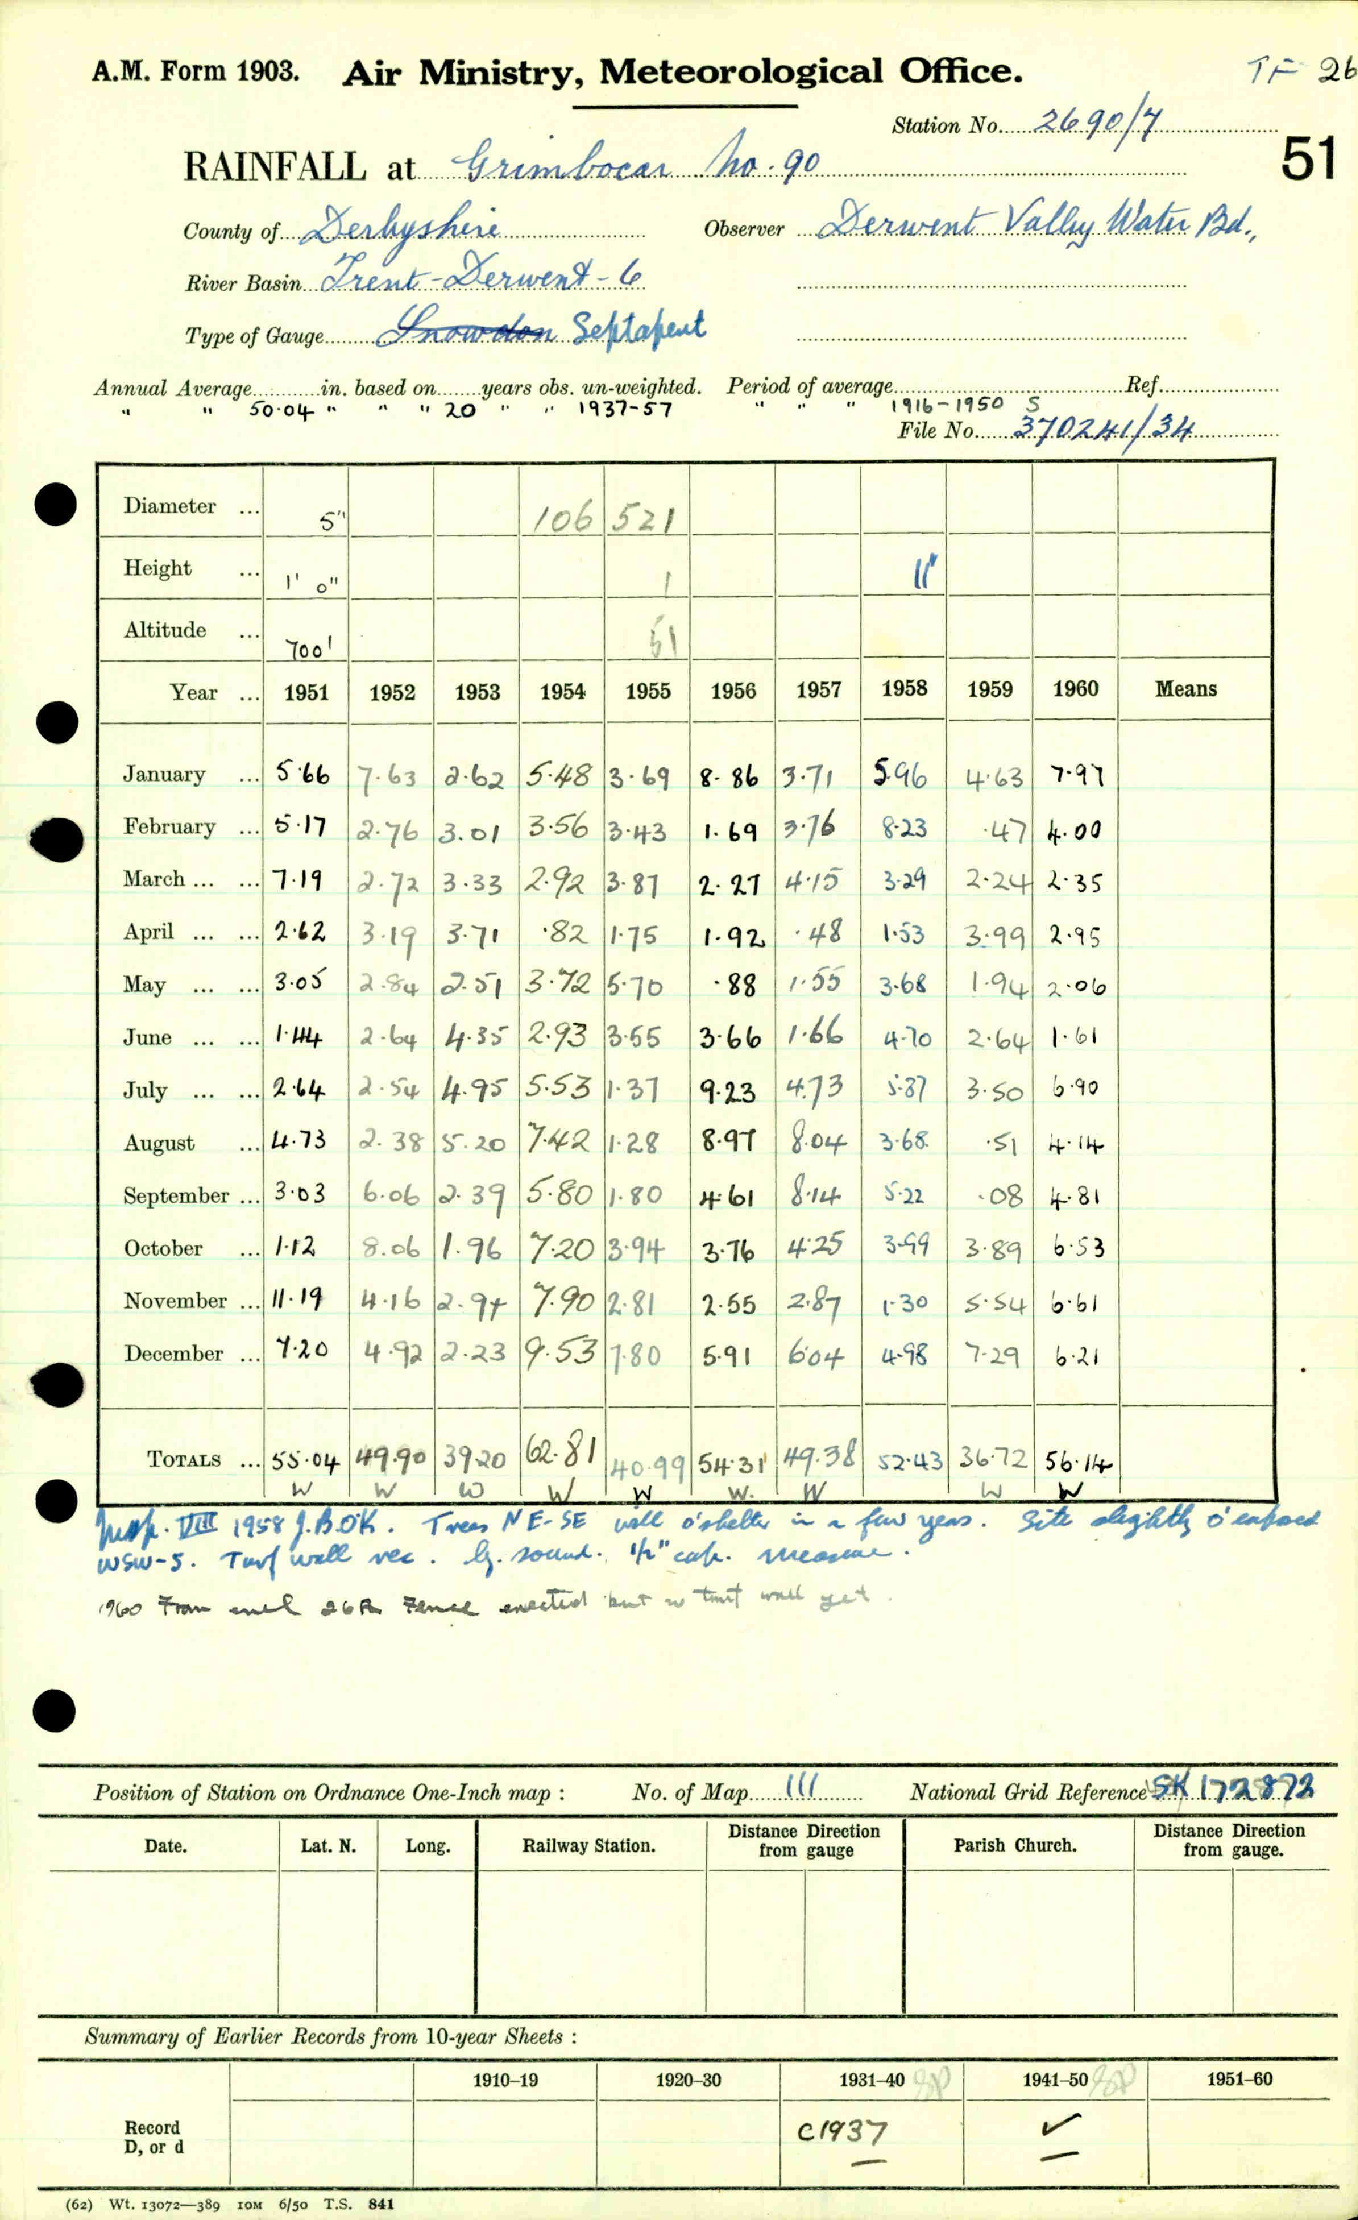 A.M. Form 1903. Air Ministry, Meteorological Office. TF 26
Station No. 2690/7
51
RAINFALL at Grimbocar No. 90
County of Derbyshire Observer Derwent Valley Water Bd.,
River Basin Trent-Derwent-6
Type of Gauge Snowdon Septapent
Annual Average in. based on years obs. un-weighted. Period of average Ref.
" " 50.04 " " " 20 " " 1937-57 " " " 1916-1950 S
File No. 370241/34
Diameter ... 5" 106 521
Height ... 1' 0" 1 11"
Altitude ... 700' 51
Year ... 1951 1952 1953 1954 1955 1956 1957 1958 1959 1960 Means
January ... 5.66 7.63 2.62 5.48 3.69 8.86 3.71 5.96 4.63 7.97
February ... 5.17 2.76 3.01 3.56 3.43 1.69 3.76 8.23 .47 4.00
March ... ... 7.19 2.72 3.33 2.92 3.87 2.27 4.15 3.29 2.24 2.35
April ... ... 2.62 3.19 3.71 .82 1.75 1.92 .48 1.53 3.99 2.95
May ... ... 3.05 2.84 2.51 3.72 5.70 .88 1.55 3.68 1.94 2.06
June ... ... 1.44 2.64 4.35 2.93 3.55 3.66 1.66 4.70 2.64 1.61
July ... ... 2.64 2.54 4.95 5.53 1.37 9.23 4.73 5.87 3.50 6.90
August ... 4.73 2.38 5.20 7.42 1.28 8.97 8.04 3.68 .51 4.14
September ... 3.03 6.06 2.39 5.80 1.80 4.61 8.14 5.22 .08 4.81
October ... 1.12 8.06 1.96 7.20 3.94 3.76 4.25 3.99 3.89 6.53
November ... 11.19 4.16 2.94 7.90 2.81 2.55 2.87 1.30 5.54 6.61
December ... 7.20 4.92 2.23 9.53 7.80 5.91 6.04 4.98 7.29 6.21
TOTALS ... 55.04 49.90 39.20 62.81 40.99 54.31 49.38 52.43 36.72 56.14
W W W W W W. W W W
Insp. VIII 1958 J.BOK. Trees NE-SE will o'shelter in a few years. Site slightly o'exposed
WSW-S. Turf wall rec. Lg. sound. 1/2" cap. measure.
1960 From encl 26A Fence erected but no turf wall yet.
Position of Station on Ordnance One-Inch map : No. of Map 111 National Grid Reference SK 172872
Date. Lat. N. Long. Railway Station. Distance from Direction gauge Parish Church. Distance from Direction gauge.
Summary of Earlier Records from 10-year Sheets :
1910–19 1920–30 1931–40 1941–50 1951–60
Record D, or d c1937 ✓
(62) Wt. 13072—389 10M 6/50 T.S. 841